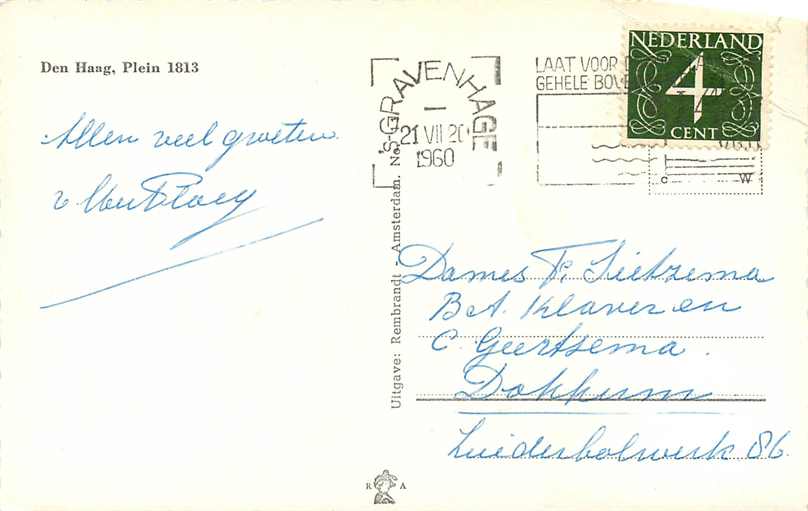 Den Haag, Plein 1813
Allen veel groeten
v
'S-GRAVENHAGE
21 VII 20
1960
LAAT VOOR
GEHELE
NEDERLAND
4
CENT
c W
Uitgave: Rembrandt - Amsterdam. No.
Dames F. Sietzema
Bet. Klaver en
C. Geertsema.
Dokkum
Zuiderbolwerk 86
R A